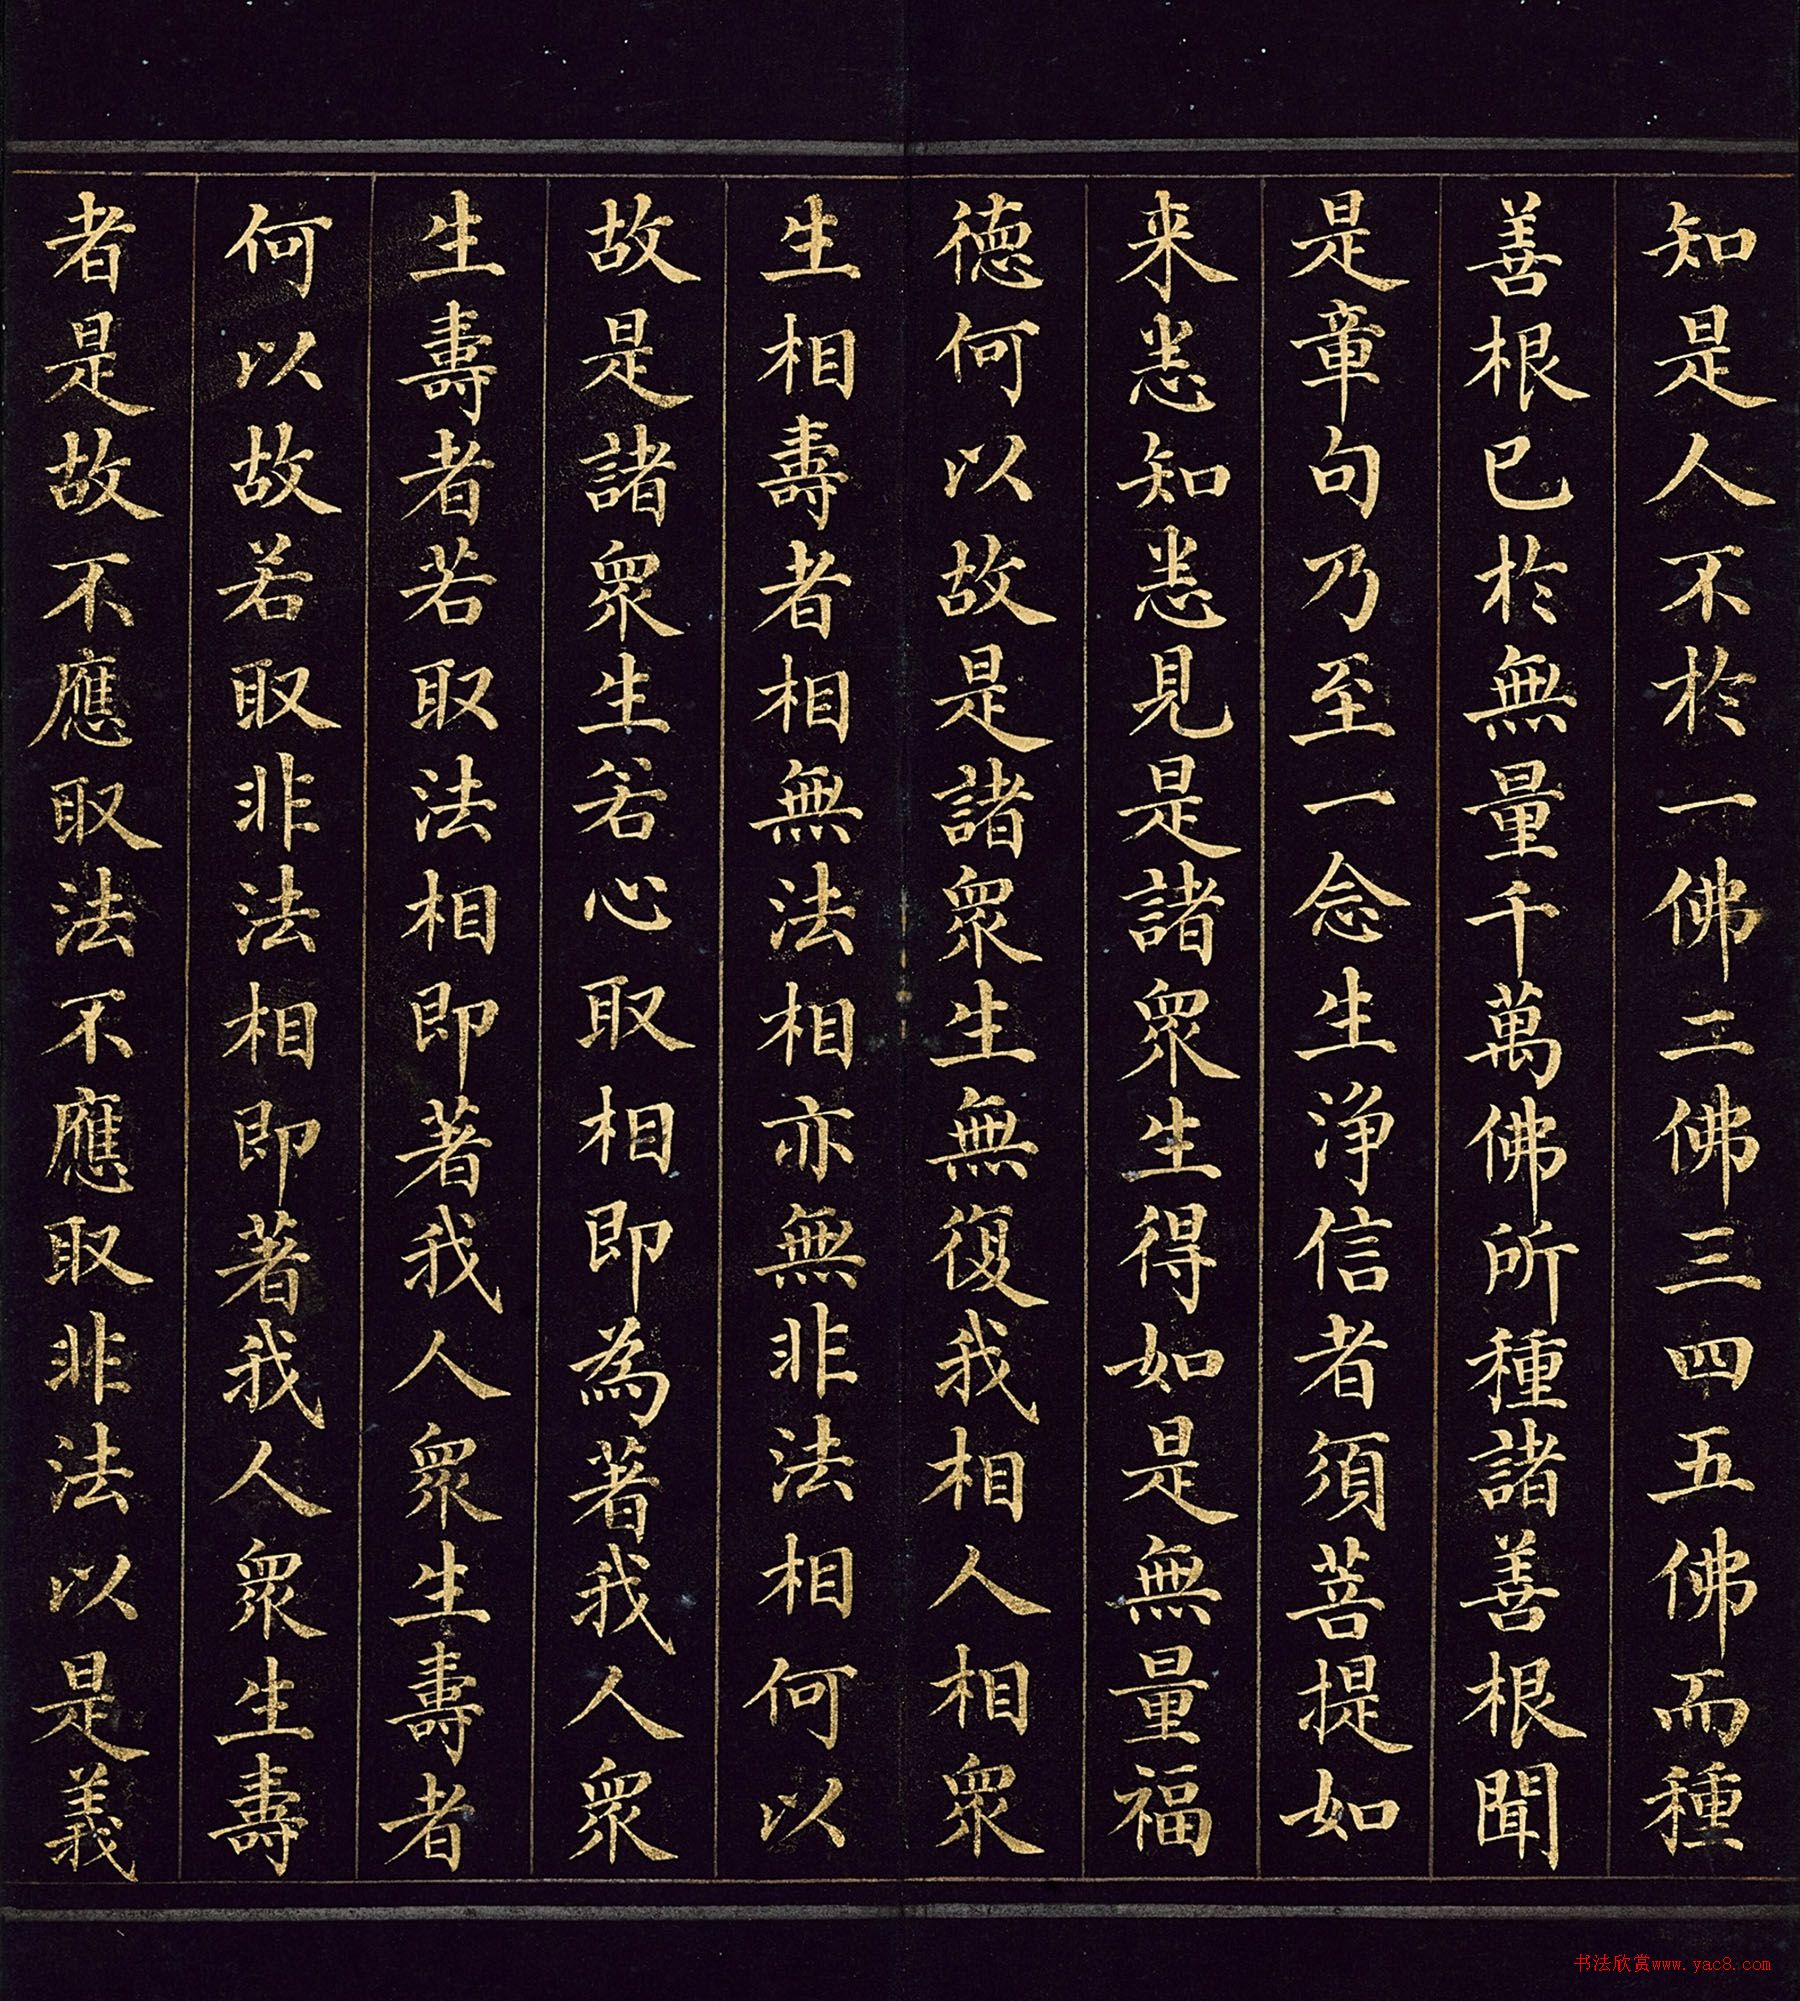 知是人不於一佛二佛三四五佛而種
善根已於無量千萬佛所種諸善根聞
是章句乃至一念生淨信者須菩提如
来悉知悉見是諸眾生得如是無量福
德何以故是諸眾生無復我相人相眾
生相壽者相無法相亦無非法相何以
故是諸眾生若心取相即為著我人眾
生壽者若取法相即著我人眾生壽者
何以故若取非法相即著我人眾生壽
者是故不應取法不應取非法以是義
书法欣赏www.yac8.com